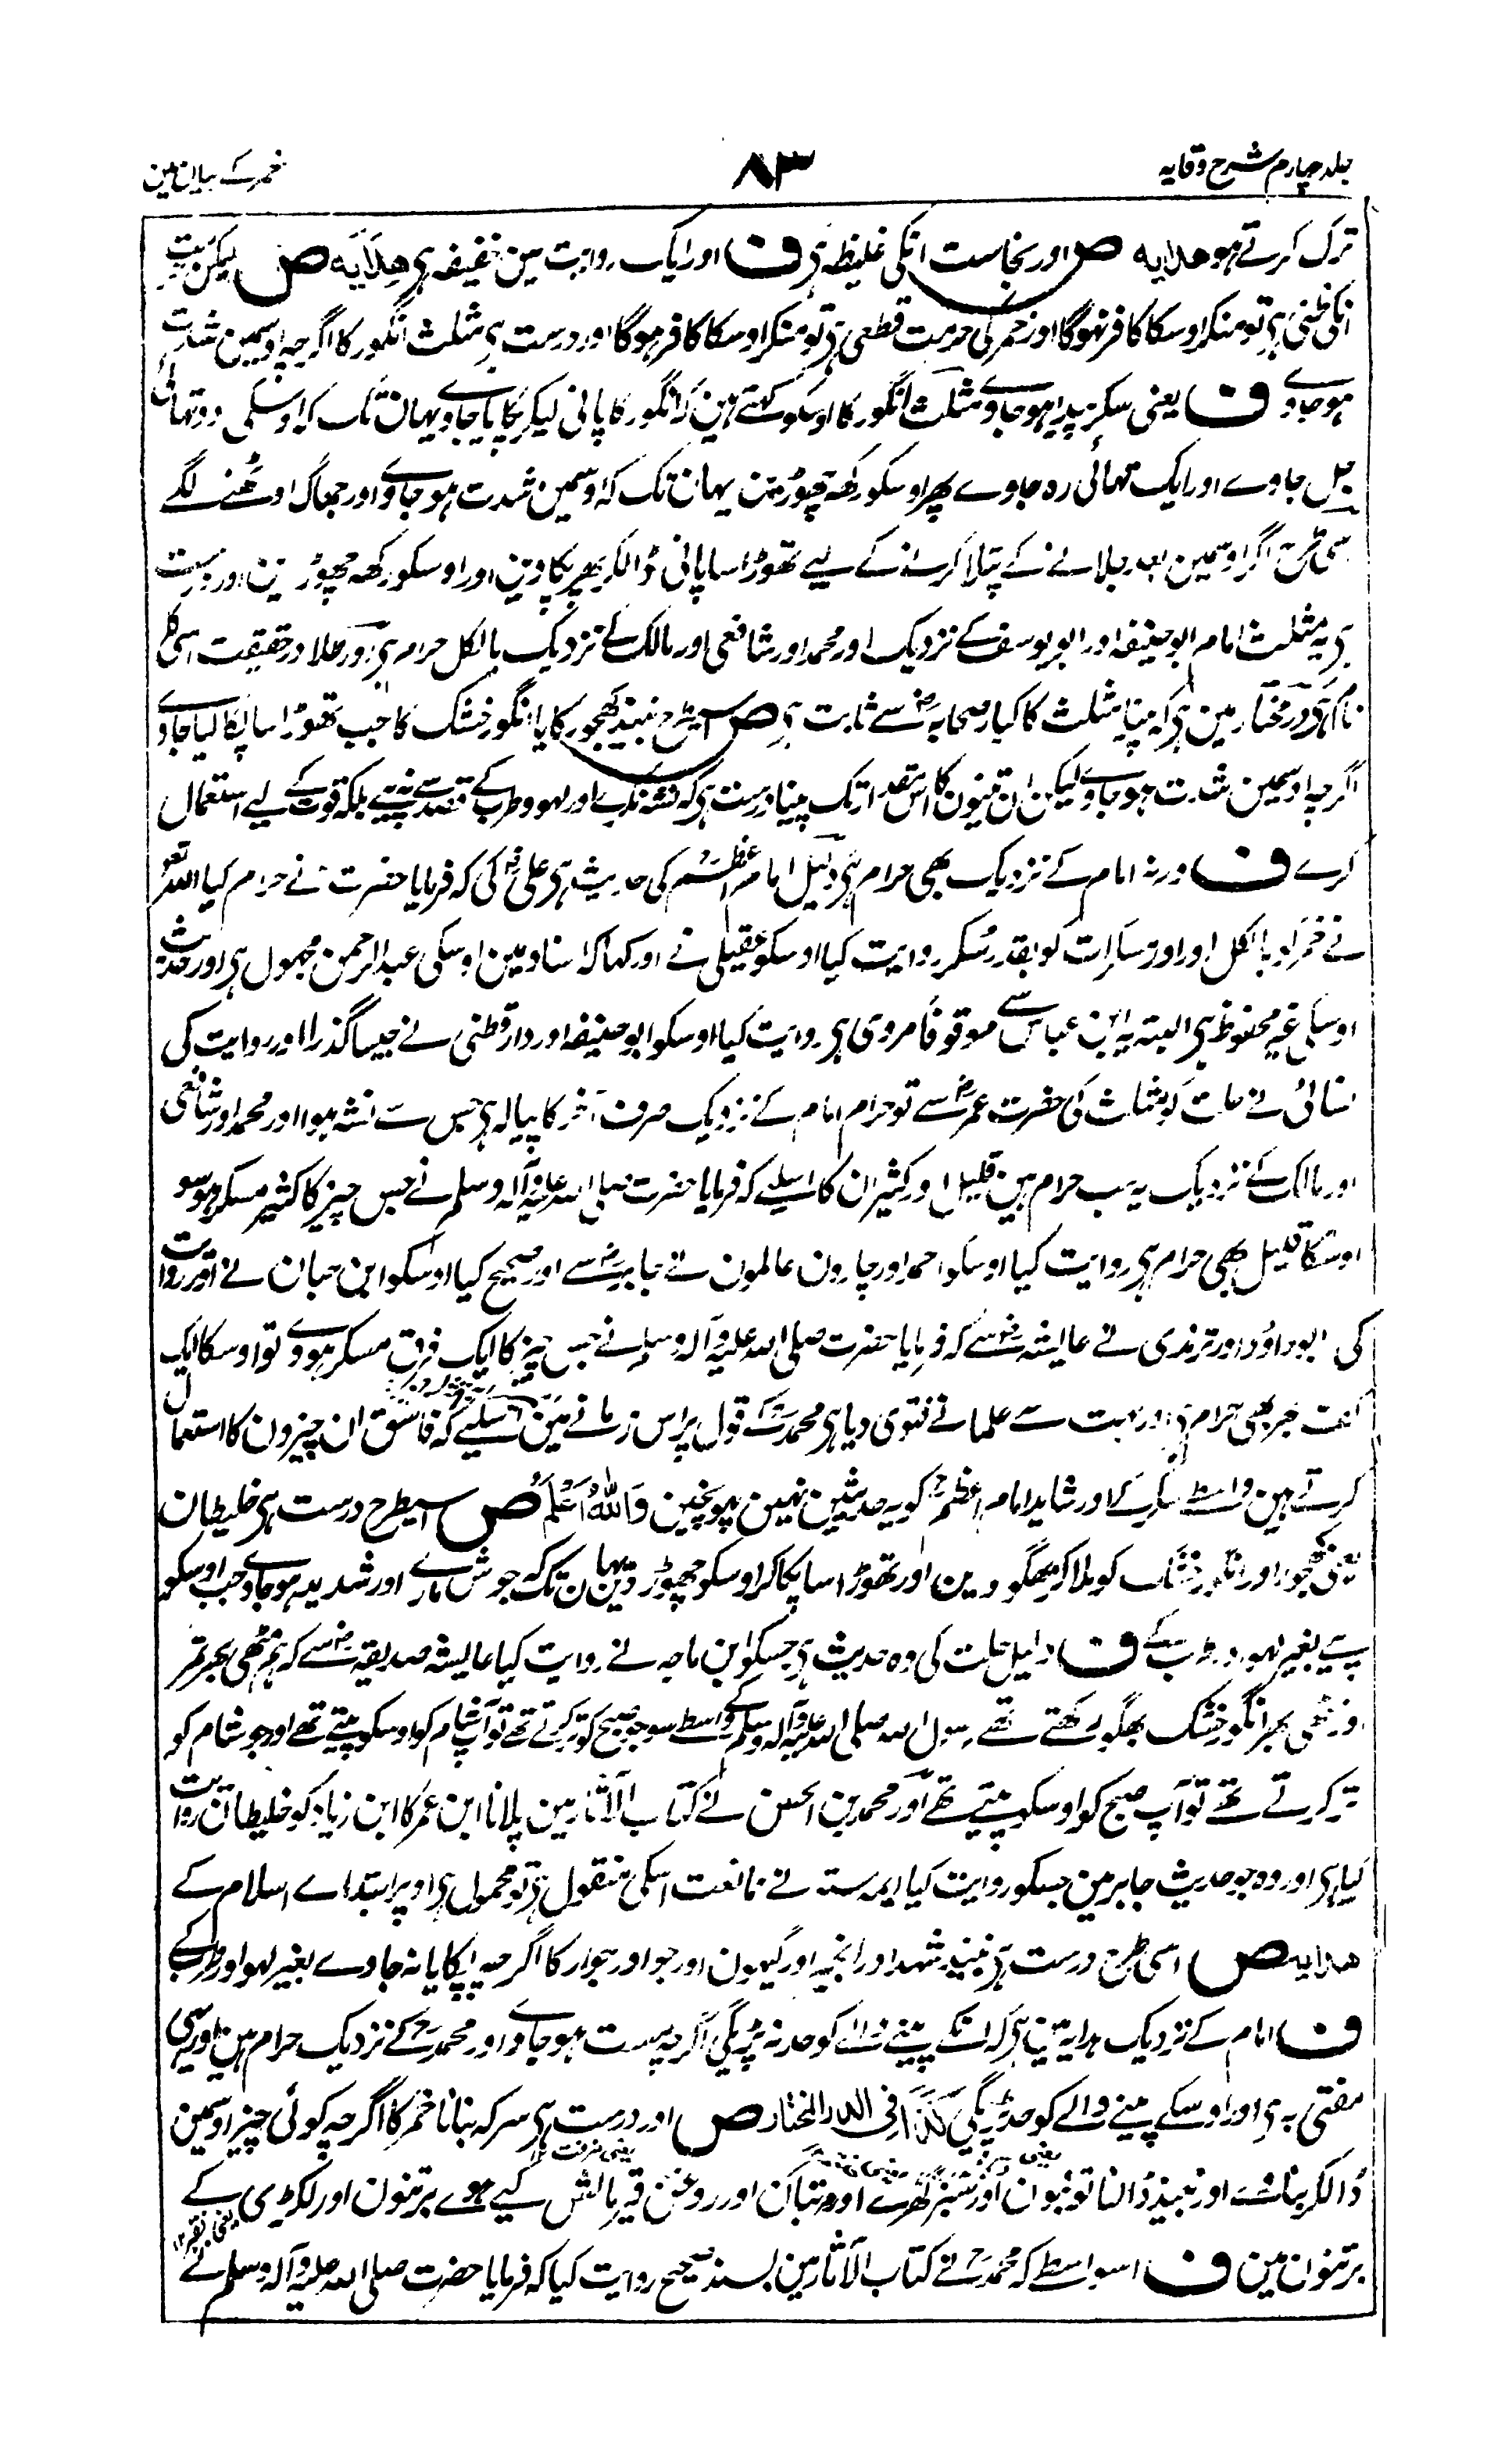 جلد چہارم شرح وقایہ ۸۳ خمر کے بیان مین
ترک کرتے ہو ھدایہ ص اور نجاست انکی غلیظہ ہی ف اور ایک روایت مین خفیفہ ہی ھدایہ ص لیکن حرمت
انکی ظنی ہی تو منکر اوسکا کافر نہوگا اور خمر کی حرمت قطعی ہی تو منکر اوسکا کافر ہوگا اور درست ہی مثلث انگور کا اگرچہ اوسمین شدت
ہو جاوے ف یعنی سکر پیدا ہو جاوے مثلث انگور کا اوسکو کہتے ہین کہ انگور کا پانی لیکر پکایا جاوے یہان تک کہ اوسکی دو تہائی
جل جاوے اور ایک تہائی رہ جاوے پھر اوسکو رکھ چھوڑین یہان تک کہ اوسمین شدت ہو جاوے اور جھاگ اوٹھنے لگے
اسی طرح اگر اوسمین بعد جلانے کے پتلا کرنے کے لیے تھوڑا سا پانی ڈالکر پھر پکاوین اور اوسکو رکھ چھوڑین اور درست
ہی یہ مثلث امام ابو حنیفہ اور ابو یوسف کے نزدیک اور محمد اور شافعی اور مالک کے نزدیک بالکل حرام ہی اور طلا در حقیقت اسی کا
نام ہی در مختار مین ہی کہ پینا مثلث کا کبار صحابہ رض سے ثابت ہی ص اسیطرح نبیذ کھجور کا یا انگور خشک کا جب تھوڑا سا پکا لیا جاوے
اگرچہ اوسمین شدت ہو جاوے لیکن ان تینون کا اس قدر تک پینا درست ہی کہ نشہ نکرے اور لہو و طرب کے قصد سے نہ پیے بلکہ قوت کے لیے استعمال
کرے ف ورنہ امام کے نزدیک بھی حرام ہی دلیل امام اعظم کی حدیث ہی علی رض کی کہ فرمایا حضرت نے حرام کیا اللہ تعالی
نے خمر کو بالکل اور اور مسکرات کو بقدر سُکر روایت کیا اوسکو عقیلی نے اور کہا کہ اسناد مین اوسکی عبد الرحمن مجہول ہی اور حدیث
اوسکی غیر محفوظ ہی البتہ یہ ابن عباس سے موقوفاً مروی ہی روایت کیا اوسکو ابو حنیفہ اور دارقطنی نے جیسا گذرا اور روایت کی
نسائی نے حلت مثلث کی حضرت عمر رض سے تو حرام امام کے نزدیک صرف آخر کا پیالہ ہی جس سے نشہ ہوا اور محمد اور شافعی
اور مالک کے نزدیک یہ سب حرام ہین قلیل اور کثیر ان کا اسلیے کہ فرمایا حضرت صلی اللہ علیہ وآلہ وسلم نے جس چیز کا کثیر مسکر ہو سو
اوسکا قلیل بھی حرام ہی روایت کیا اوسکو احمد اور چارون عالمون نے جابر رض سے اور صحیح کیا اوسکو ابن حبان نے اور روایت
کی ابو داؤد اور ترمذی نے عایشہ رض سے کہ فرمایا حضرت صلی اللہ علیہ وآلہ وسلم نے جس چیز کا ایک فرق مسکر ہووے تو اوسکا ایک
کف بھر بھی حرام ہی اور بہت سے علما نے فتوی دیا ہی محمد رح کے قول پر اس زمانے مین اسلیے کہ فاسق ان چیزون کا استعمال
کرتے ہین واسطے سکر کے اور شاید امام اعظم رح کو یہ حدیثین نہین پہونچین وَاللّٰہُ اَعْلَمُ ص اسیطرح درست ہی خلیطان
یعنی کھجور اور انگور خشک کو ملا کر بھگو دین اور تھوڑا سا پکا کر اوسکو چھوڑ دین یہان تک کہ جوش مارے اور شدید ہو جاوے جب اوسکو
پیے بغیر لہو و طرب کے ف دلیل حلت کی وہ حدیث ہی جسکو ابن ماجہ نے روایت کیا عایشہ صدیقہ رض سے کہ ہم مٹھی بھر تمر
اور مٹھی بھر انگور خشک بھگو رکھتے تھے رسول اللہ صلی اللہ علیہ وآلہ وسلم کے واسطے سو جو صبح کو تر کرتے تھے تو آپ شام کو اوسکو پیتے تھے اور جو شام کو
تر کرتے تھے تو آپ صبح کو اوسکو پیتے تھے اور محمد بن الحسن نے کتاب الآثار مین پلانا ابن عمر کا ابن زیاد کو خلیطان روایت
کیا ہی اور وہ جو حدیث جابر مین جسکو روایت کیا ایمہ ستہ نے ممانعت اسکی منقول ہی تو محمول ہی اوپر ابتداے اسلام کے
ھدایہ ص اسی طرح درست ہی نبیذ شہد اور انجیر اور گیہون اور جو اور جوار کا اگرچہ پکایا نہ جاوے بغیر لہو اور طرب کے
ف امام کے نزدیک ہدایہ مین ہی کہ انکے پینے والے کو حد نہ پڑیگی اگرچہ مست ہو جاوے اور محمد رح کے نزدیک حرام ہین اور یہی
مفتی بہ ہی اور اوسکے پینے والے کو حد پڑیگی کَذَا فِی الدر المختار ص اور درست ہی سرکہ بنانا خمر کا اگرچہ کوئی چیز اوسمین
ڈالکر بناوے اور نبیذ ڈالنا تونبون اور سبز گھڑے اور مرتبان اور روغن قیر مالش کیے ہوے برتنون اور لکڑی کے
برتنون مین ف اسواسطے کہ محمد رح نے کتاب الآثار مین بسند صحیح روایت کیا کہ فرمایا حضرت صلی اللہ علیہ وآلہ وسلم نے